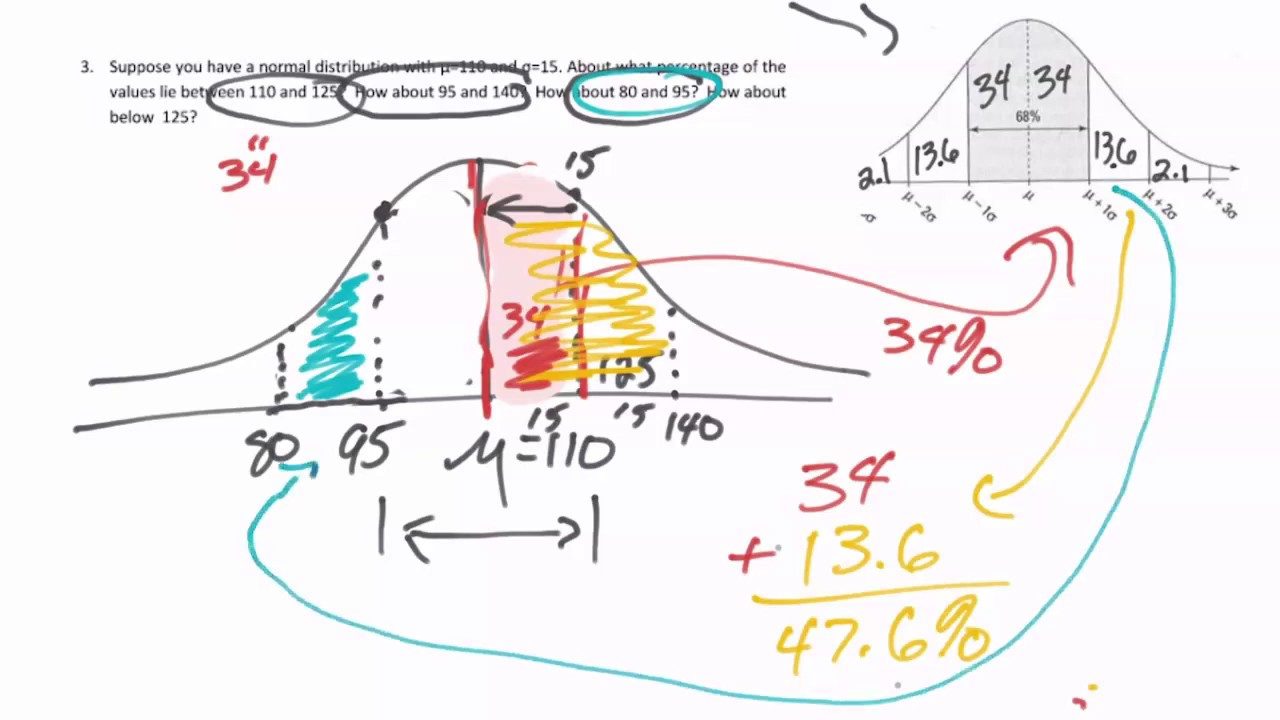 3. Suppose you have a normal distribution with μ=110 and σ=15. About what percentage of the
values lie between 110 and 125? How about 95 and 140? How about 80 and 95? How about
below 125?
34
34 34
68%
2.1 13.6 13.6 2.1
σ μ−2σ μ−1σ μ μ+1σ μ+2σ μ+3σ
15
34
125
15 15
80 95 μ=110 140
34%
34
+ 13.6
47.6%